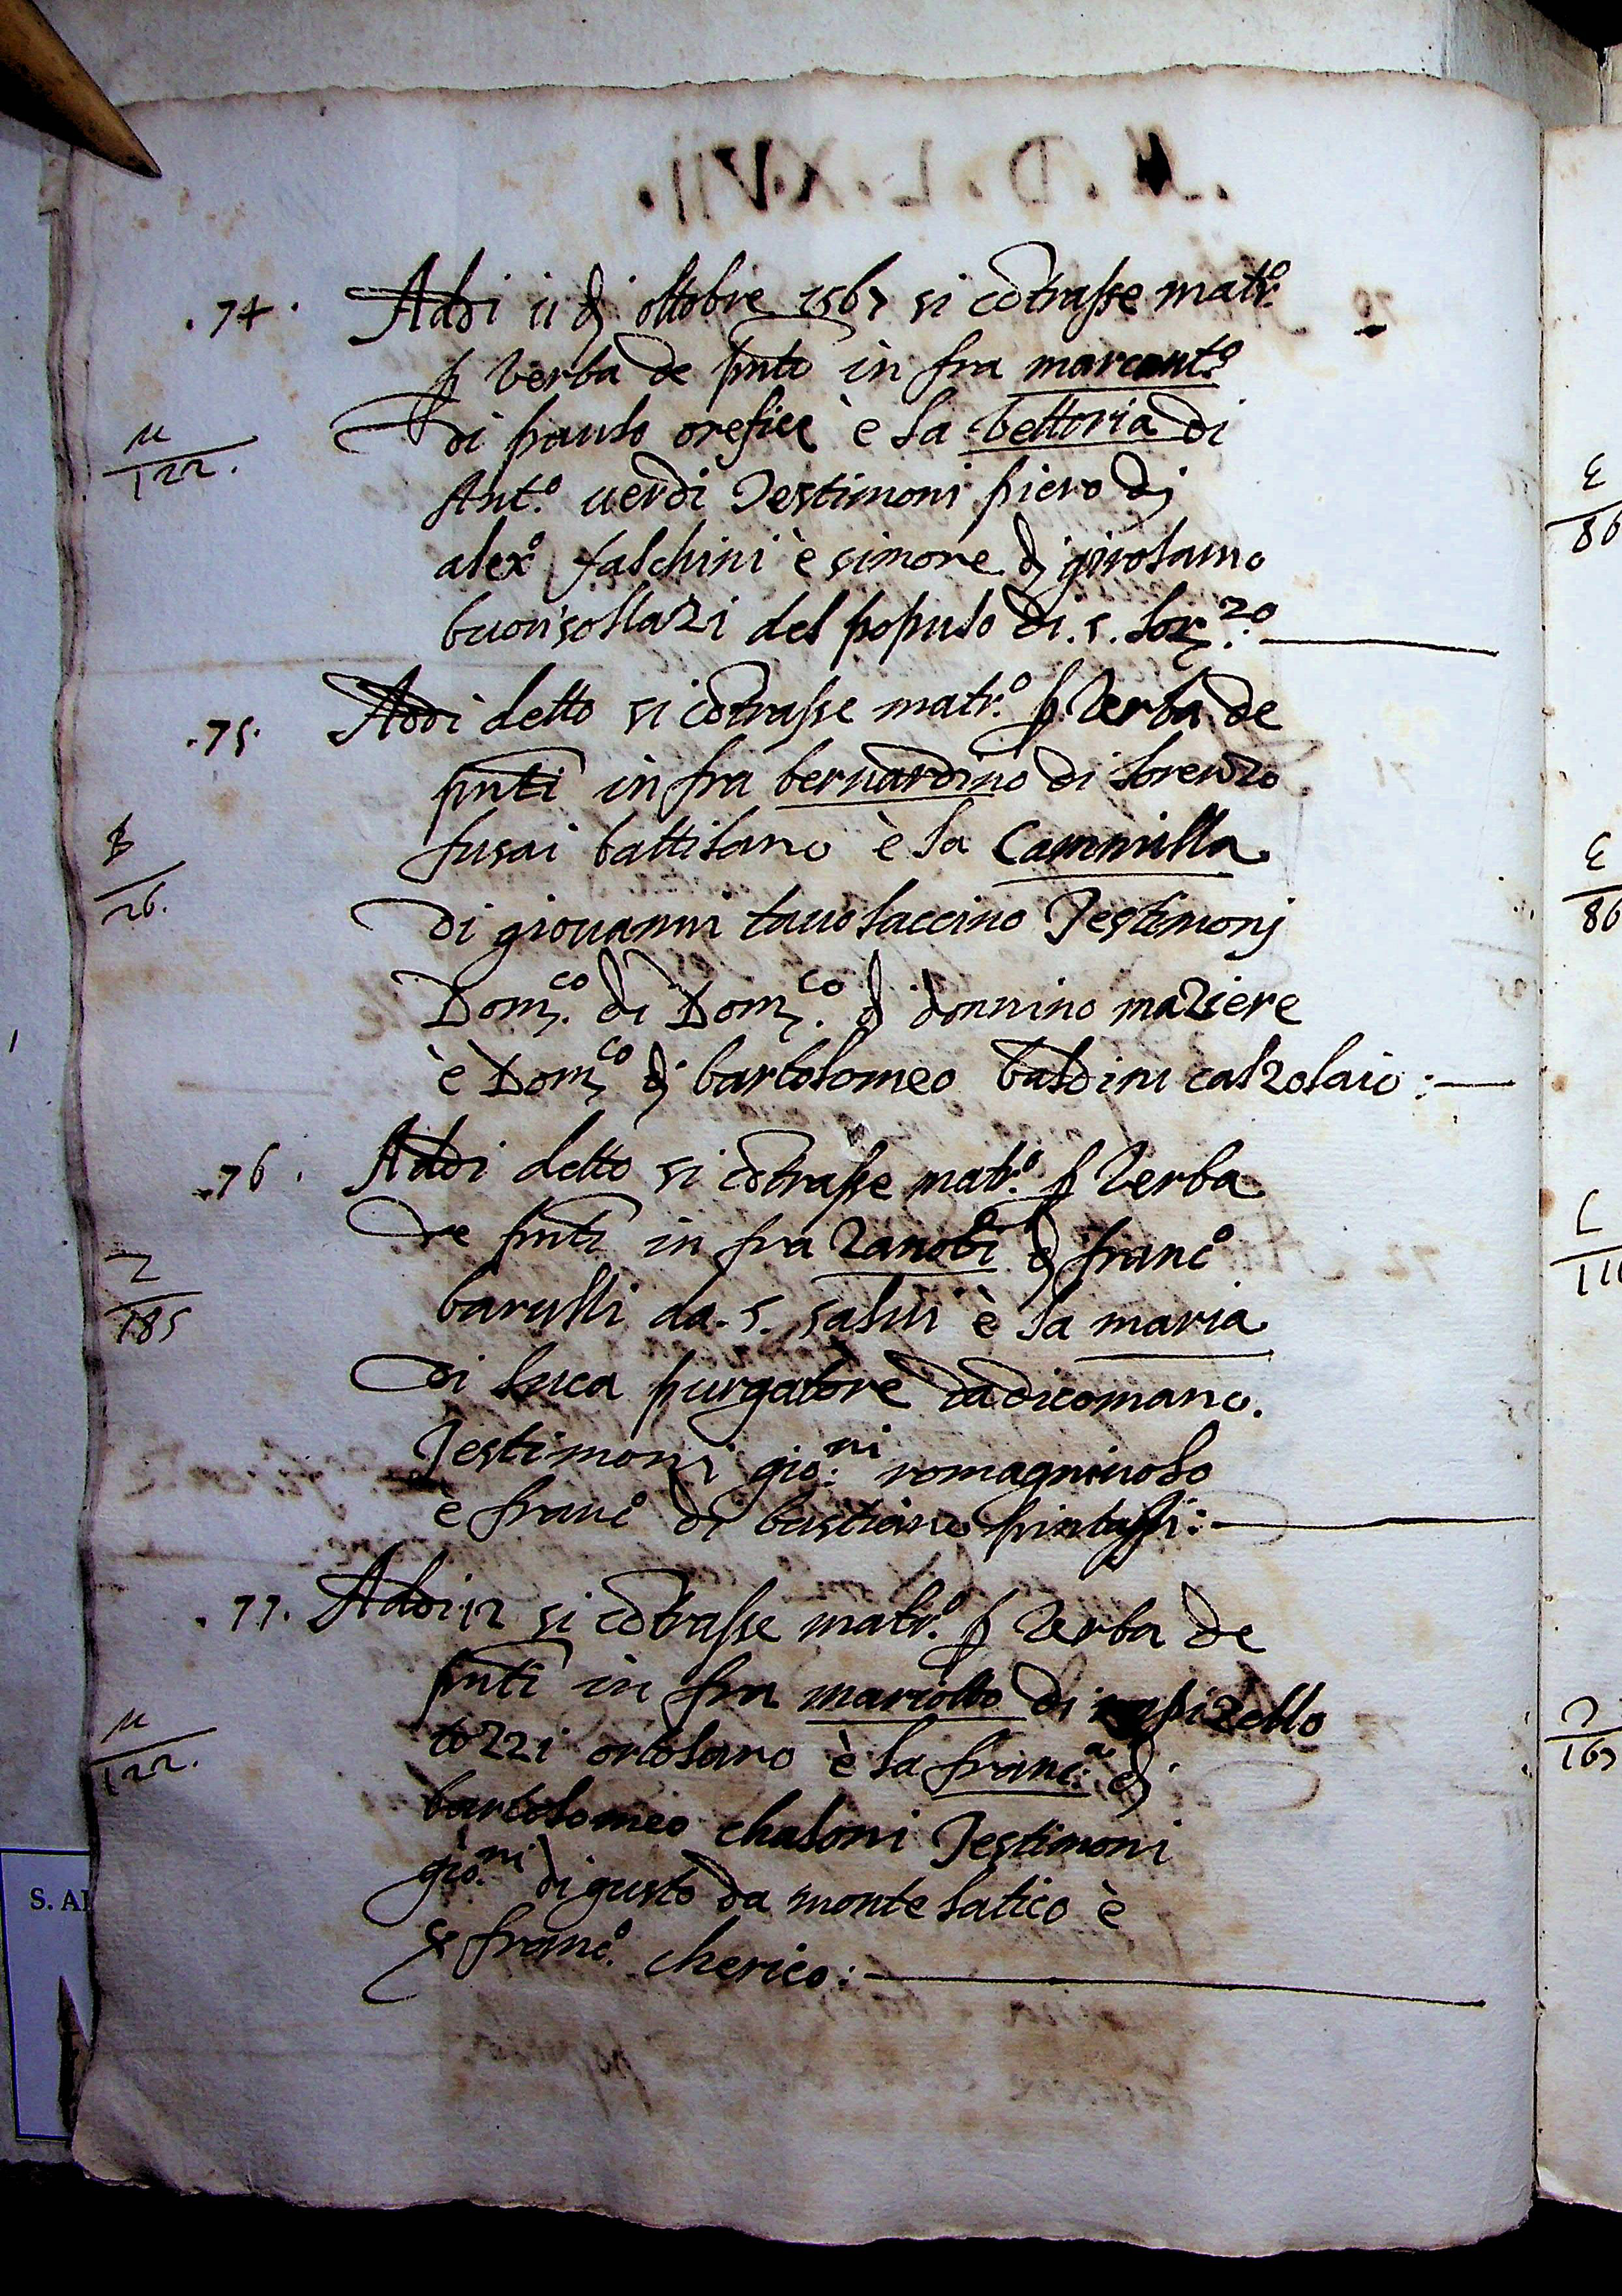 .74. Addi 11 di ottobre 1567 si cõtrasse matr.º
p verba de pnti in fra marcant.º
di paulo orefice è la bettoria di
M
122.
Ant.º uerdi Testimoni piero di
alex.º falchini è simone di girolamo
buonsollazi del populo di .s. lor.zo
.75. Addi detto si cõtrasse matr.º p verba de
pnti in fra bernardino di lorenzo
B
26.
fusai battilano è la Cammilla
di giouanni tauolaccino Testimonj
Dom.co di Dom.co di donnino maziere
è Dom.co di bartolomeo baldini calzolaio :
.76. Addi detto si cõtrasse matr.º p verba
de pnti in fra Zanobi di franc.º
Z
185
barulli da .s. salui è la maria
di luca purgatore da dicomano.
Testimoni gio.ni romagniuolo
è franc.º di bastiano :
.77. Addi 12 si cõtrasse matr.º p verba de
pnti in fra mariotto di
M
122.
tozzi ortolano è la franc.a di
bartolomeo chaloni Testimoni
gio.ni di gusto da monte latico è
s franc.º cherico :
S. A